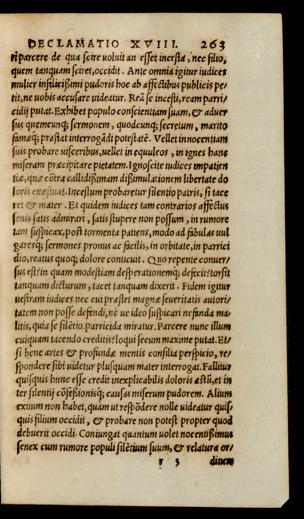 DECLAMATIO XVIII. 263
parcere de qua scire uoluit an esset incesta, nec filio,
quem tanquam sciret, occidit. Ante omnia igitur iudices
mulier infelicissimi pudoris hoc ab affectibus publicis pe-
tit, ne uobis accusare uideatur. Reã se incesti, ream parri-
cidij putat. Exhibet populo conscientiam suam, & aduer
sus quemcunq; sermonem, quodcunq; secretum, marito
famæq; præstat interrogãdi potestatẽ. Vellet innocentiam
suis probare uisceribus, uellet in equuleos, in ignes hanc
miseram præcipitare pietatem. Ignoscite iudices impatien
tiæ, quæ cõtra callidissimam dissimulationem libertate do
loris exæstuat. Incestum probaretur silentio patris, si tace
ret & mater. Et quidem iudices tam contrarios affectus
senis satis admirari, satis stupere non possum, in rumore
tam suspicax, post tormenta patiens, modo ad fabulas uul
garesq; sermones pronus ac facilis, in orbitate, in parrici
dio, reatus quoq; dolore conticuit. Quo repente conuer-
sus est? in quam modestiam desperationemq; defecit? torsit
tanquam dicturum, tacet tanquam dixerit. Fidem igitur
uestram iudices nec cui præstet magna seueritatis autori/
tatem non posse defendi, nè ue ideo suspicari nefanda ma
litis, quia se silẽtio parricida miratur. Parcere nunc illum
cuiquam tacendo creditis? loqui secum maxime putat. Et/
si bene artes & profundæ mentis consilia perspicio, re/
spondere sibi uidetur plusquam mater interrogat. Fallitur
quisquis hunc esse credit inexplicabilis doloris æstũ, et in
ter silentij cõfessionisq; causas miserum pudorem. Alium
exitum non habet, quàm ut respõdere nolle uideatur quis
quis filium occidit, & probare non potest propter quod
debuerit occidi. Coniungat quantum uolet nocentissimus
senex cum rumore populi silẽtium suum, & relatura or/
r 5 dinem